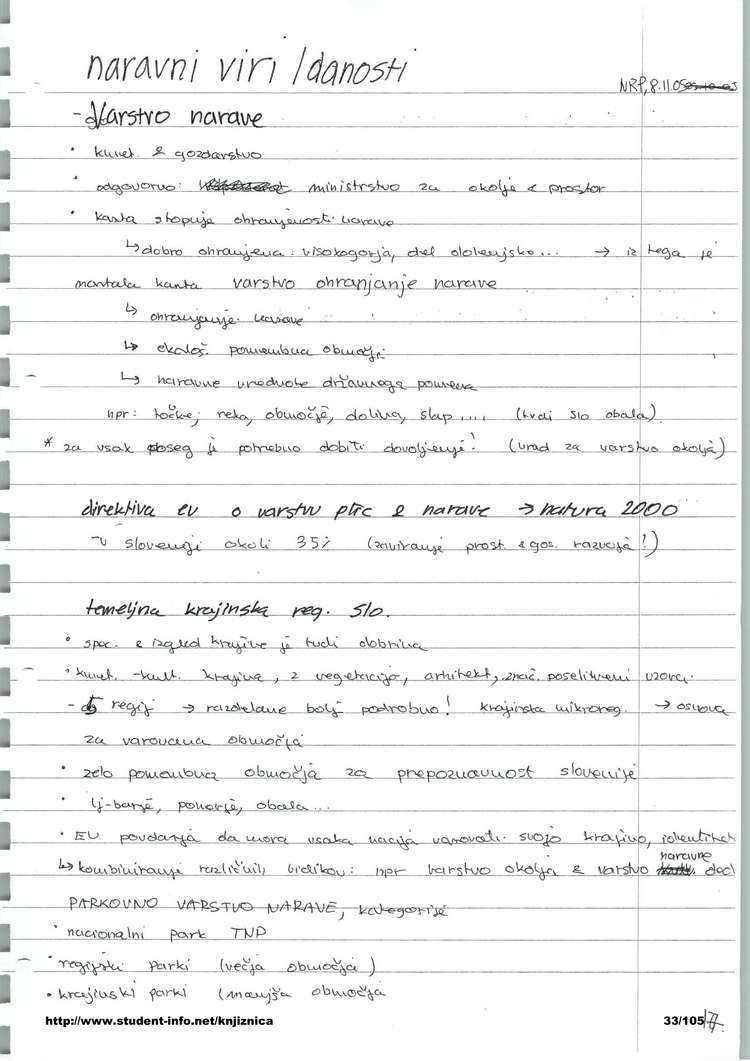 naravni viri / danosti
NRP, 8.11.05
- Varstvo narave
• kmet. & gozdarstvo
• odgovorno: ministrstvo za okolje & prostor
• karta stopnje ohranjenosti narave
↳ dobro ohranjena: visokogorja, del dolenjske... → iz tega je
nastala karta varstvo ohranjanje narave
↳ ohranjanje narave
↳ ekološ. pomembna območja
↳ naravne vrednote državnega pomena
npr: točke; reka, območje, dolina, slap .... (tudi slo obala)
* za vsak poseg je potrebno dobiti dovoljenje! (urad za varstvo okolja)
direktiva EU o varstvu ptic & narave → natura 2000
- v sloveniji okoli 35% (zaviranje prost. & gos. razvoja!)
temeljna krajinska reg. slo.
• spec. & izgled krajine je tudi dobrina
• kmet. - kult. krajina, z vegetacijo, arhitekt, znač. poselitveni vzorci.
- 5 regij → razdelane bolj podrobno! krajinska mikroreg. → osnova
za varovana območja
• zelo pomembna območja za prepoznavnost slovenije
• lj-barje, pohorje, obala...
• EU povdarja da mora vsaka nacija varovati svojo krajino, identitet
↳ kombiniranje različnih vidikov: npr varstvo okolja & varstvo naravne ded
PARKOVNO VARSTVO NARAVE, kategorije
• nacionalni park TNP
• regijski parki (večja območja)
• krajinski parki (manjša območja
http://www.student-info.net/knjiznica
33/105
17